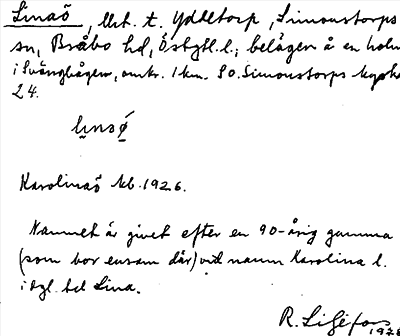 Linaö, lht. t. Yddetorp, Simonstorps
sn, Bråbo hd, Östgtl. l.; belägen å en holm
i Svängbågen, omkr. 1 km. SO. Simonstorps kyrka
24.
li̱nsǿ
Karolinaö kb. 1926.
Namnet är givet efter en 90-årig gumma
(som bor ensam där) vid namn Karolina l.
i dgl. tal Lina.
R. Liljefors 1928